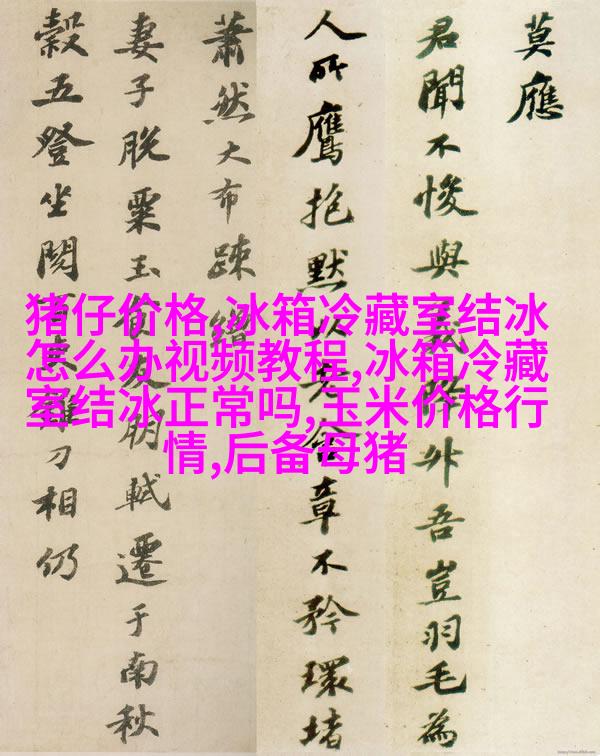 莫應
君聞不悛與義降升吾豈羽毛為
人所鷹抱默以老含章不矜環堵
蕭然大布疎繒
妻子脫粟玉食友朋軾遷于南秋
穀五登坐閱百吏錐刀相仍
猪仔价格,冰箱冷藏室结冰
怎么办视频教程,冰箱冷藏
室结冰正常吗,玉米价格行
情,后备母猪